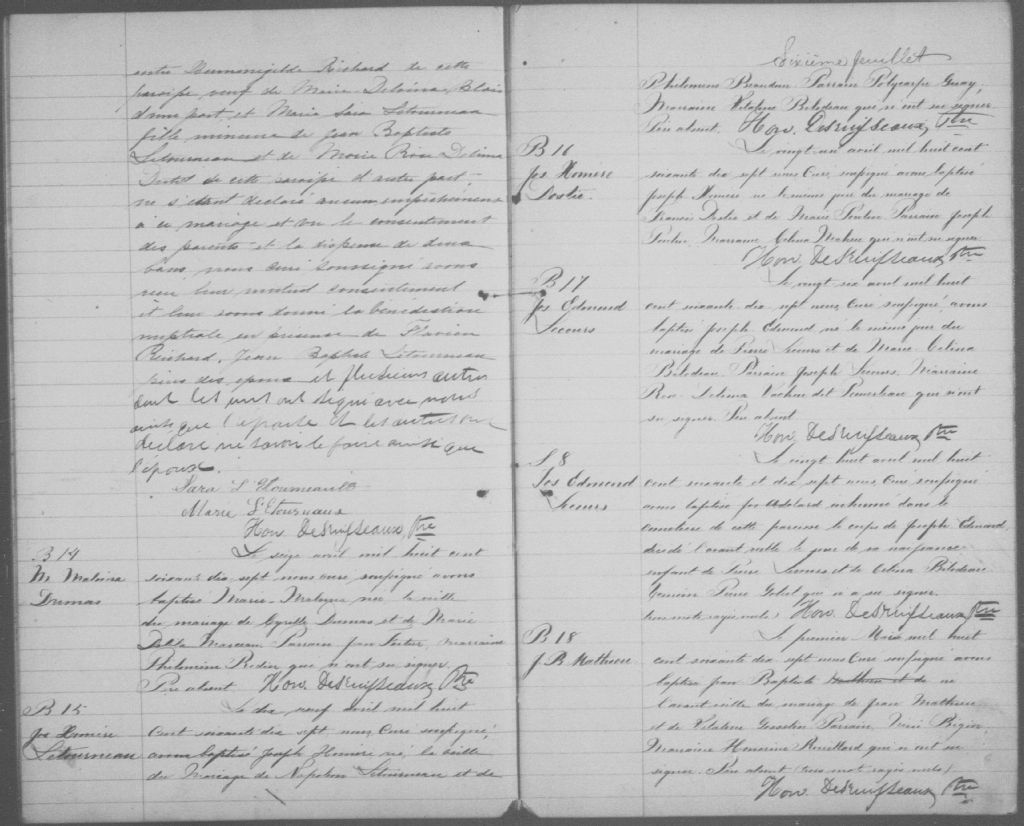 entre Hermenigilde Richard de cette
paroisse veuf de Marie Delvina Blais
d'une part, et Marie Sara Letourneau
fille mineure de Jean Baptiste
Letourneau et de Marie Rose Delima
de cette paroisse d'autre part,
ne s'etant declaré aucun empêchement
à ce mariage et vu le consentement
des parents et la dispense de deux
bans, nous curé soussigné avons
reçu leur mutuel consentement
et leur avons donné la bénédiction
nuptiale en presence de Flavien
Richard, Jean Baptiste Letourneau
pères des epoux et plusieurs autres
dont les uns ont signé avec nous
ainsi que l'épouse et les autres ont
déclaré ne savoir le faire ainsi que
l'époux.
Sara
Marie L'Etourneau
Hon. DesRuisseaux, Ptre
B 14
M. Malvina
Dumas
Le seize avril mil huit cent
soixante dix sept nous curé soussigné avons
baptisé Marie-Malvina née la veille
du mariage de Cyrille Dumas et de Marie
Marceau Parrain Jean marraine
Philomène que n'ont su signer
Père absent Hon. DesRuisseaux, Ptre
B 15
Jos Homère
Letourneau
Le dix neuf avril mil huit
cent soixante dix sept nous, Curé soussigné,
avons baptisé Joseph Homère né la veille
du Mariage de Napoléon Letourneau et de
Sixième feuillet
Philomène Beaudoin Parrain Polycarpe Guay
Marraine Bilodeau qui n'ont su signer
Père absent. Hon. DesRuisseaux, Ptre
B 16
Jos Homère
Dostie.
Le vingt un avril mil huit cent
soixante dix sept nous Curé soussigné avons baptisé
joseph Homère né le même jour du mariage de
Francis Dostie et de Marie Poulin Parrain Joseph
Poulin, Marraine Celina Maheu qui n'ont su signer
Hon. DesRuisseaux, Ptre
B 17
Jos Edmond
Lecours
Le vingt six avril mil huit
cent soixante dix sept nous, Curé soussigné, avons
baptisé joseph Edmond, né le même jour du
mariage de Pierre Lecours et de Marie Celina
Bilodeau. Parrain Joseph Lecours, Marraine
Rose Delima Vachon dit Pomerleau qui n'ont
su signer. Père absent
Hon. DesRuisseaux, Ptre
S 8
Jos Edmond
Lecours
Le vingt huit avril mil huit
cent soixante et dix sept nous Curé soussigné
avons inhumé dans le
cimetière de cette paroisse le corps de joseph Edmond,
decédé l'avant veille le jour de sa naissance
enfant de Pierre Lecours et de Celina Bilodeau
Pierre qui n'a su signer.
trois mots rayés nuls. Hon. DesRuisseaux, Ptre
B 18
J. B. Mathieu
Le premier Mai mil huit
cent soixante dix sept nous Curé soussigné avons
baptisé Jean Baptiste né
l'avant veille du mariage de Jean Mathieu
et de Gosselin Parrain, Bégin
Marraine Honorine Rouillard qui n'ont su
signer. Père absent (trois mots rayés nuls)
Hon. DesRuisseaux, Ptre